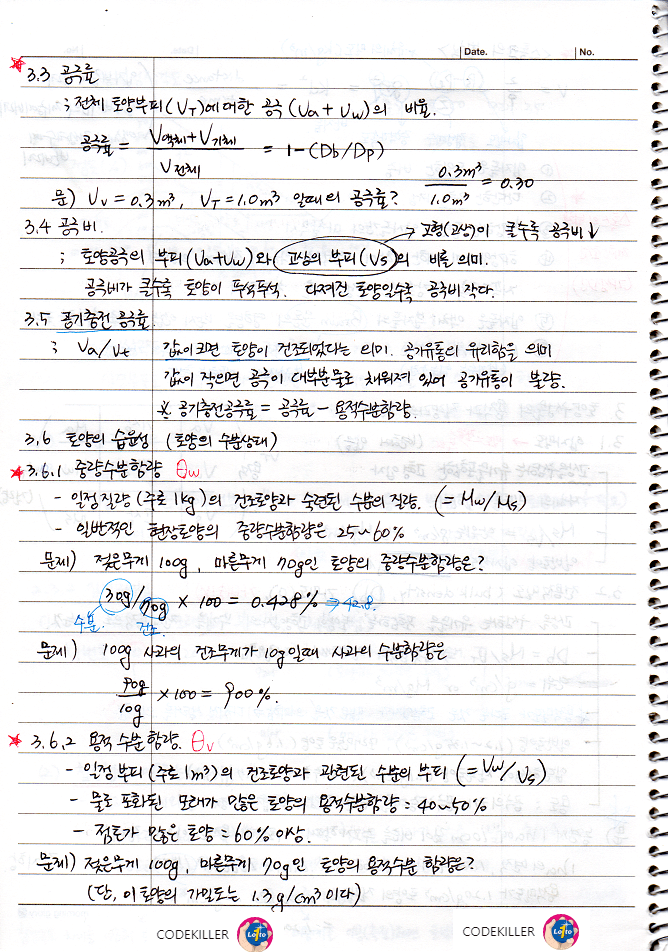 Date. No.
3.3 공극률
; 전체 토양부피(V_T)에 대한 공극(Va + Vw)의 비율.
공극률 = V액체+V기체 / V전체 = 1-(Db/Dp)
문) Vv = 0.3m³, V_T = 1.0m³ 일때의 공극률? 0.3m³ / 1.0m³ = 0.30
3.4 공극비. → 고형(고상)이 클수록 공극비↓
; 토양공극의 부피(Va+Vw)와 고상의 부피(Vs)의 비를 의미.
공극비가 클수록 토양이 푸석푸석. 다져진 토양일수록 공극비 작다.
3.5 공기충전 공극률.
; Va/Vt 값이 크면 토양이 건조되었다는 의미. 공기유통의 유리함을 의미
값이 작으면 공극이 대부분 물로 채워져 있어 공기유통이 불량.
※ 공기충전공극률 = 공극률 - 용적수분함량.
3.6 토양의 습윤성 (토양의 수분상태)
★ 3.6.1 중량수분함량 θw
- 일정질량(주로 1kg)의 건조토양과 관련된 수분의 질량. (= Mw/Ms)
- 일반적인 현장토양의 중량수분함량은 25~60%
문제) 젖은무게 100g, 마른무게 70g인 토양의 중량수분함량은?
30g/70g × 100 = 0.428% → 42.8.
수분. 건조.
문제) 100g 사과의 건조무게가 10g일때 사과의 수분함량은
90g / 10g × 100 = 900%.
★ 3.6.2 용적수분함량. θv
- 일정부피(주로 1m³)의 건조토양과 관련된 수분의 부피 (= Vw/Vs)
- 물로 포화된 모래가 많은 토양의 용적수분함량 : 40~50%
- 점토가 많은 토양 : 60% 이상.
문제) 젖은무게 100g, 마른무게 70g인 토양의 용적수분함량은?
(단, 이 토양의 가밀도는 1.3g/cm³이다)
CODEKILLER Lotto CODEKILLER Lotto